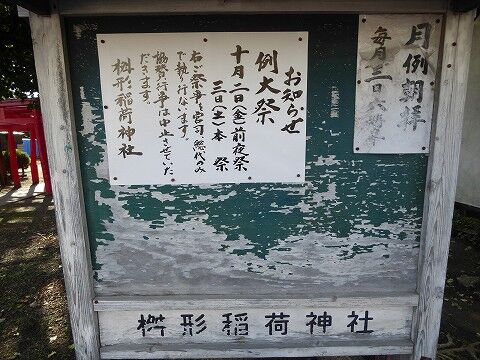 お知らせ
例大祭
十月二日(金)前夜祭
三日(土)本 祭
右の祭典を宮司、総代のみ
で執り行ないます。
協賛行事は中止させていた
だきます。
桝形稲荷神社
月例朝拝
毎月三日
桝形稲荷神社